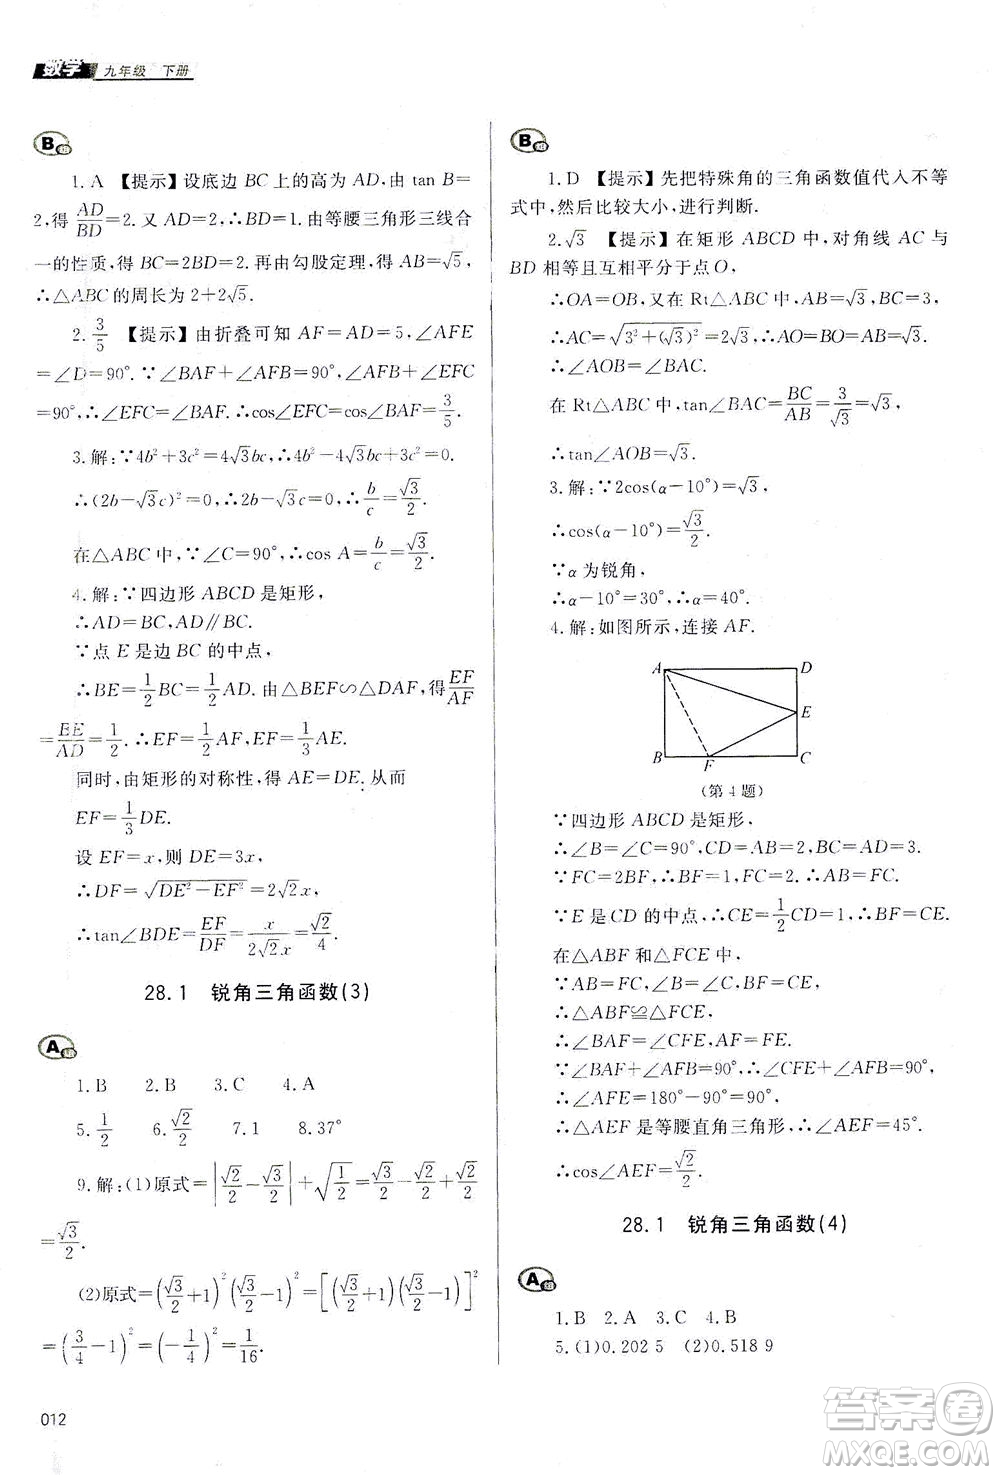 数学 九年级 下册
B
1. A 【提示】设底边 BC 上的高为 AD,由 tan B=
2,得 AD/BD=2.又 AD=2,∴BD=1.由等腰三角形三线合
一的性质,得 BC=2BD=2.再由勾股定理,得 AC=√5,
∴△ABC 的周长为 2+2√5.
2. 3/5 【提示】由折叠可知 AF=AD=5,∠AFE
=∠D=90°.∵∠BAF+∠AFB=90°,∠AFB+∠EFC
=90°,∴∠EFC=∠BAF.∴cos∠EFC=cos∠BAF=3/5.
3. 解:∵4b²+3c²=4√3bc,∴4b²-4√3bc+3c²=0.
∴(2b-√3c)²=0,∴2b-√3c=0,∴b/c=√3/2.
在△ABC 中,∵∠C=90°,∴cos A=b/c=√3/2.
4. 解:∵四边形 ABCD 是矩形,
∴AD=BC,AD∥BC.
∵点 E 是边 BC 的中点,
∴BE=1/2BC=1/2AD.由△BEF∽△DAF,得EF/AF
=BE/AD=1/2.∴EF=1/2AF,∴EF=1/3AE.
同时,由矩形的对称性,得 AE=DE.从而
EF=1/3DE.
设 EF=x,则 DE=3x,
∴DF=√(DE²-EF²)=2√2x,
∴tan∠BDE=EF/DF=x/(2√2x)=√2/4.
28.1 锐角三角函数(3)
A
1. B 2. B 3. C 4. A
5. 1/2 6. √2/2 7. 1 8. 37°
9. 解:(1)原式=|√2/2-√3/2|+√(1/2)=√3/2-√2/2+√2/2
=√3/2.
(2)原式=(√3/2+1)²(√3/2-1)²=[(√3/2+1)(√3/2-1)]²
=(3/4-1)²=(-1/4)²=1/16.
012
B
1. D 【提示】先把特殊角的三角函数值代入不等
式中,然后比较大小,进行判断.
2. √3 【提示】在矩形 ABCD 中,对角线 AC 与
BD 相等且互相平分于点 O,
∴OA=OB,又在 Rt△ABC 中,AB=√3,BC=3,
∴AC=√(3²+(√3)²)=2√3,∴AO=BO=AB=√3.
∴∠AOB=∠BAC.
在 Rt△ABC 中,tan∠BAC=BC/AB=3/√3=√3,
∴tan∠AOB=√3.
3. 解:∵2cos(α-10°)=√3,
∴cos(α-10°)=√3/2.
∵α 为锐角,
∴α-10°=30°,∴α=40°.
4. 解:如图所示,连接 AF.
A D
E
B F C
(第 4 题)
∵四边形 ABCD 是矩形,
∴∠B=∠C=90°,CD=AB=2,BC=AD=3.
∵FC=2BF,∴BF=1,FC=2.∴AB=FC.
∵E 是 CD 的中点,∴CE=1/2CD=1,∴BF=CE.
在△ABF 和△FCE 中,
∵AB=FC,∠B=∠C,BF=CE,
∴△ABF≌△FCE.
∴∠BAF=∠CFE,AF=FE.
∵∠BAF+∠AFB=90°,∴∠CFE+∠AFB=90°,
∴∠AFE=180°-90°=90°.
∴△AEF 是等腰直角三角形,∴∠AEF=45°.
∴cos∠AEF=√2/2.
28.1 锐角三角函数(4)
A
1. B 2. A 3. C 4. B
5. (1)0.202 5 (2)0.518 9
答案卷
MXQE.COM